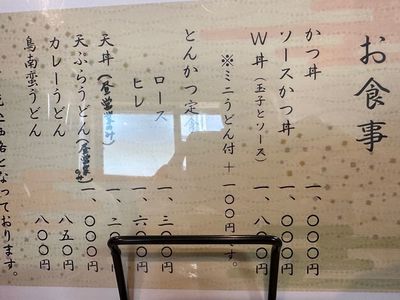 お食事
かつ丼 一、〇〇〇円
ソースかつ丼 一、〇〇〇円
W丼（玉子とソース） 一、八〇〇円
※ミニうどん付＋一〇〇円です。
とんかつ定食
ロース 一、三〇〇円
ヒレ 一、六〇〇円
天丼（昼営業のみ） 一、二〇〇円
天ぷらうどん（昼営業のみ） 一、〇〇〇円
カレーうどん 八五〇円
鳥南蛮うどん 八〇〇円
となっております。